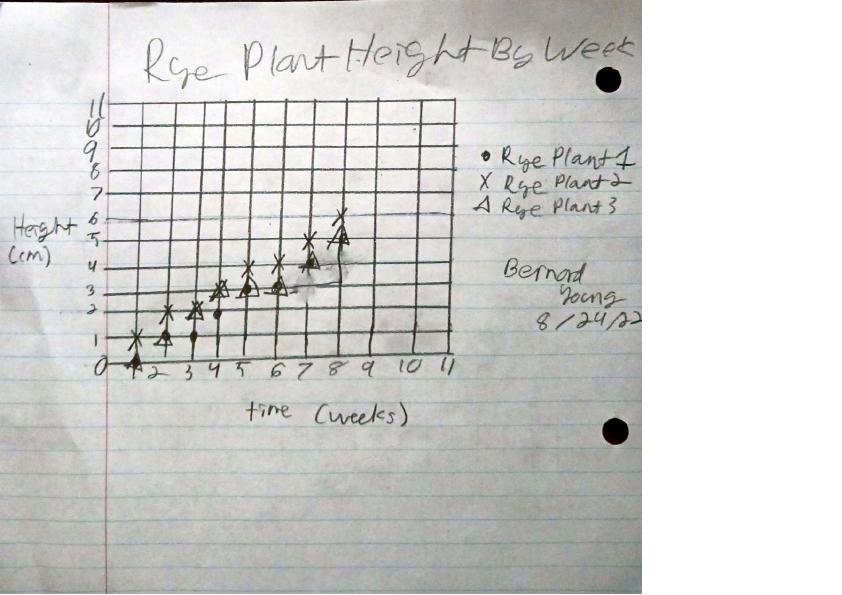 Rye Plant Height By Week
11
10
9
8
7
6
5
4
3
2
1
0
Height
(cm)
1 2 3 4 5 6 7 8 9 10 11
time (weeks)
• Rye Plant 1
X Rye Plant 2
Δ Rye Plant 3
Bernard
Young
8/24/22